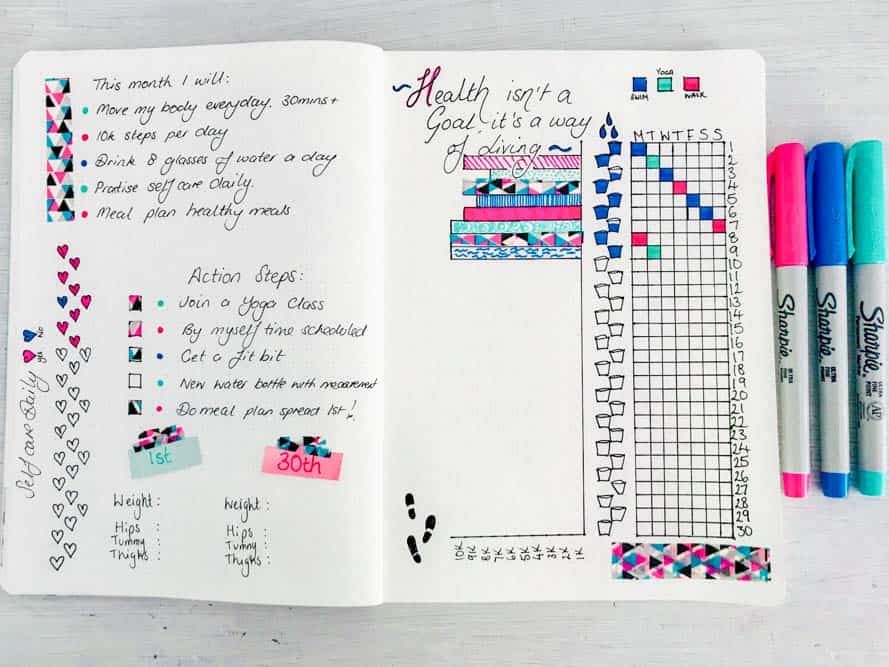 This month I will:
Move my body everyday. 30mins+
10k steps per day
Drink 8 glasses of water a day
Practise self care daily.
Meal plan healthy meals
Action Steps:
Join a Yoga Class
By myself time scheduled
Get a fit bit
New water bottle with measurement
Do meal plan spread 1st!
yes no
Self care Daily
1st
30th
Weight:
Hips :
Tummy :
Thighs :
Weight:
Hips :
Tummy :
Thighs :
Health isn't a
Goal, it's a way
of Living
SWIM
YOGA
WALK
M T W T F S S
1
2
3
4
5
6
7
8
9
10
11
12
13
14
15
16
17
18
19
20
21
22
23
24
25
26
27
28
29
30
10K 9K 8K 7K 6K 5K 4K 3K 2K 1K
Sharpie
ULTRA FINE POINT
Sharpie
ULTRA FINE POINT
Sharpie
ULTRA FINE POINT
AP